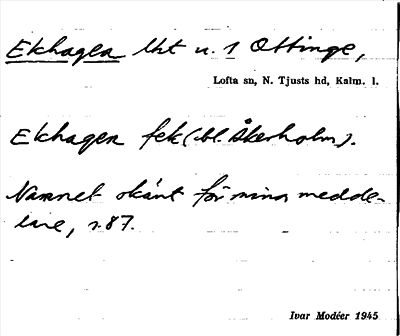 Ekhagen lht u. 1 Ottinge,
Lofta sn, N. Tjusts hd, Kalm. l.
Ekhagen fek (bl. Åkerholm).
Namnet okänt för mina medde-
lare, s. 87.
Ivar Modéer 1945